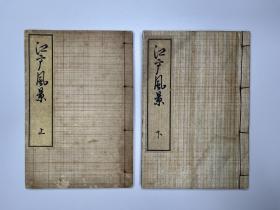 江戸風景
上
江戸風景
下